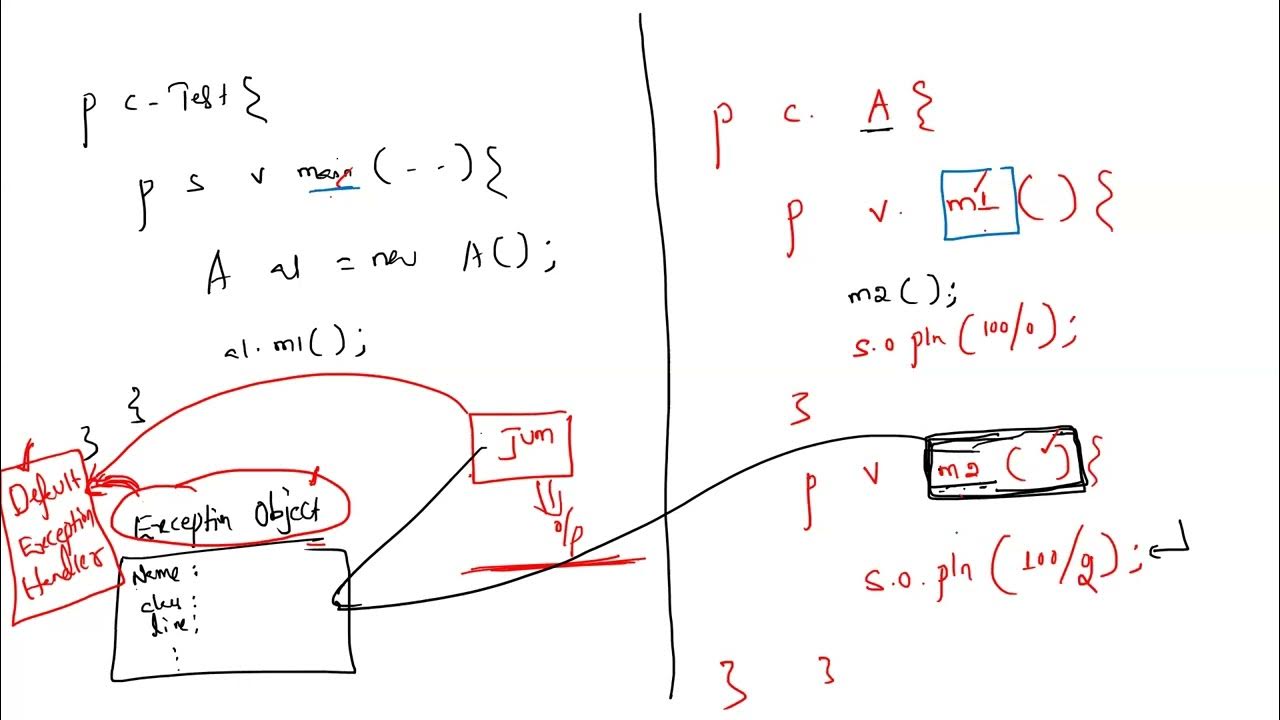 p c - Test {
p s v main ( - - ) {
A a1 = new A ( ) ;
a1. m1 ( ) ;
}
}
Jvm
o/p
Default
Exception
Handler
Exception Object
Name :
line :
:
p c. A {
p v. m1 ( ) {
m2 ( ) ;
s.o pln ( 100/0 ) ;
}
p v m2 ( ) {
s.o. pln ( 100/2 ) ;
} }